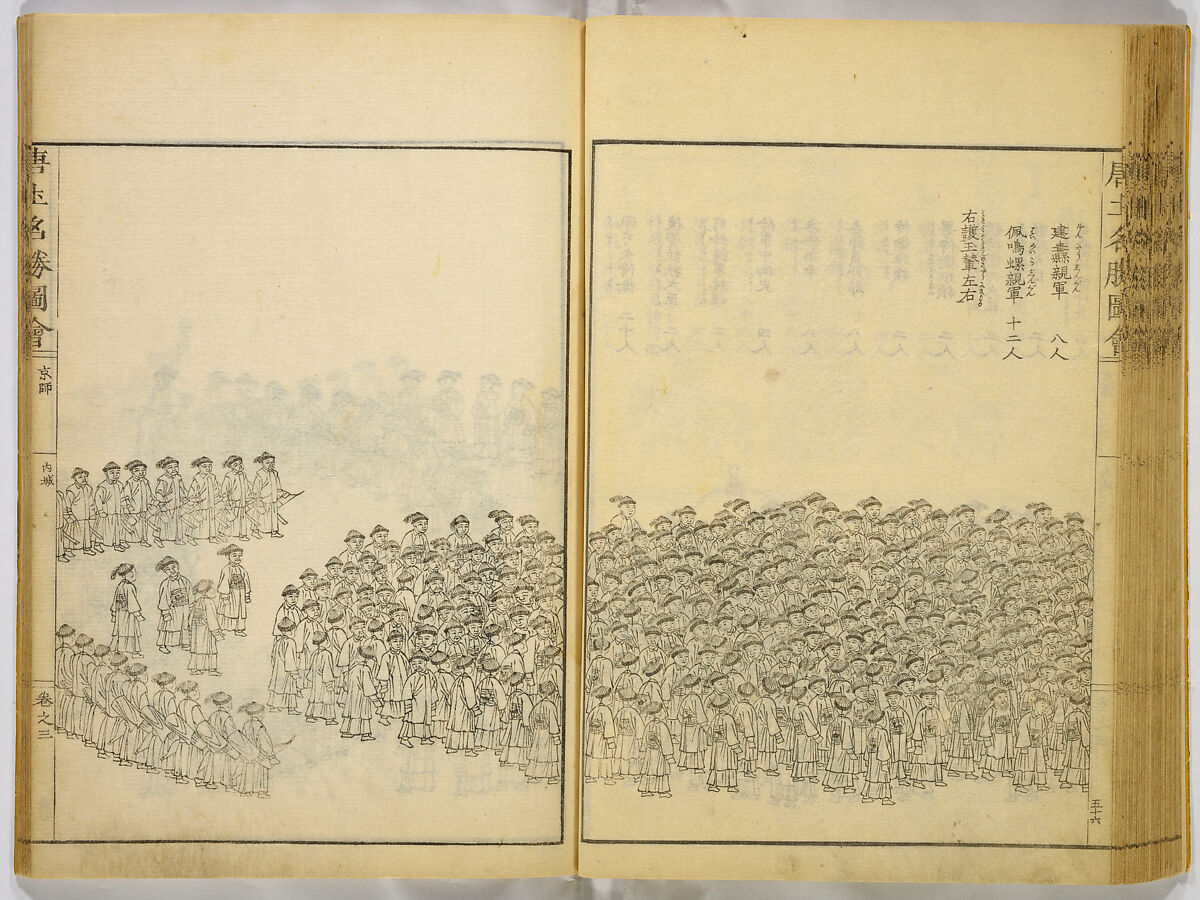 唐土名勝圖會
建纛親軍 八人
佩鳴螺親軍 十二人
右護玉輦左右
五十六
唐土名勝圖會
京師
内城
卷之三